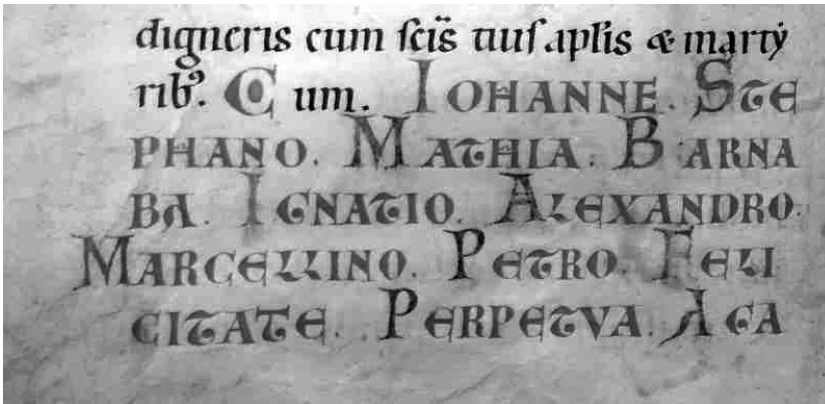 digneris cum sc̄is tuis aplis & marty
rib9. Cum. IOHANNE. STE
PHANO. MATHIA. BARNA
BA. IGNATIO. ALEXANDRO.
MARCELLINO. PETRO. FELI
CITATE. PERPETVA. AGA